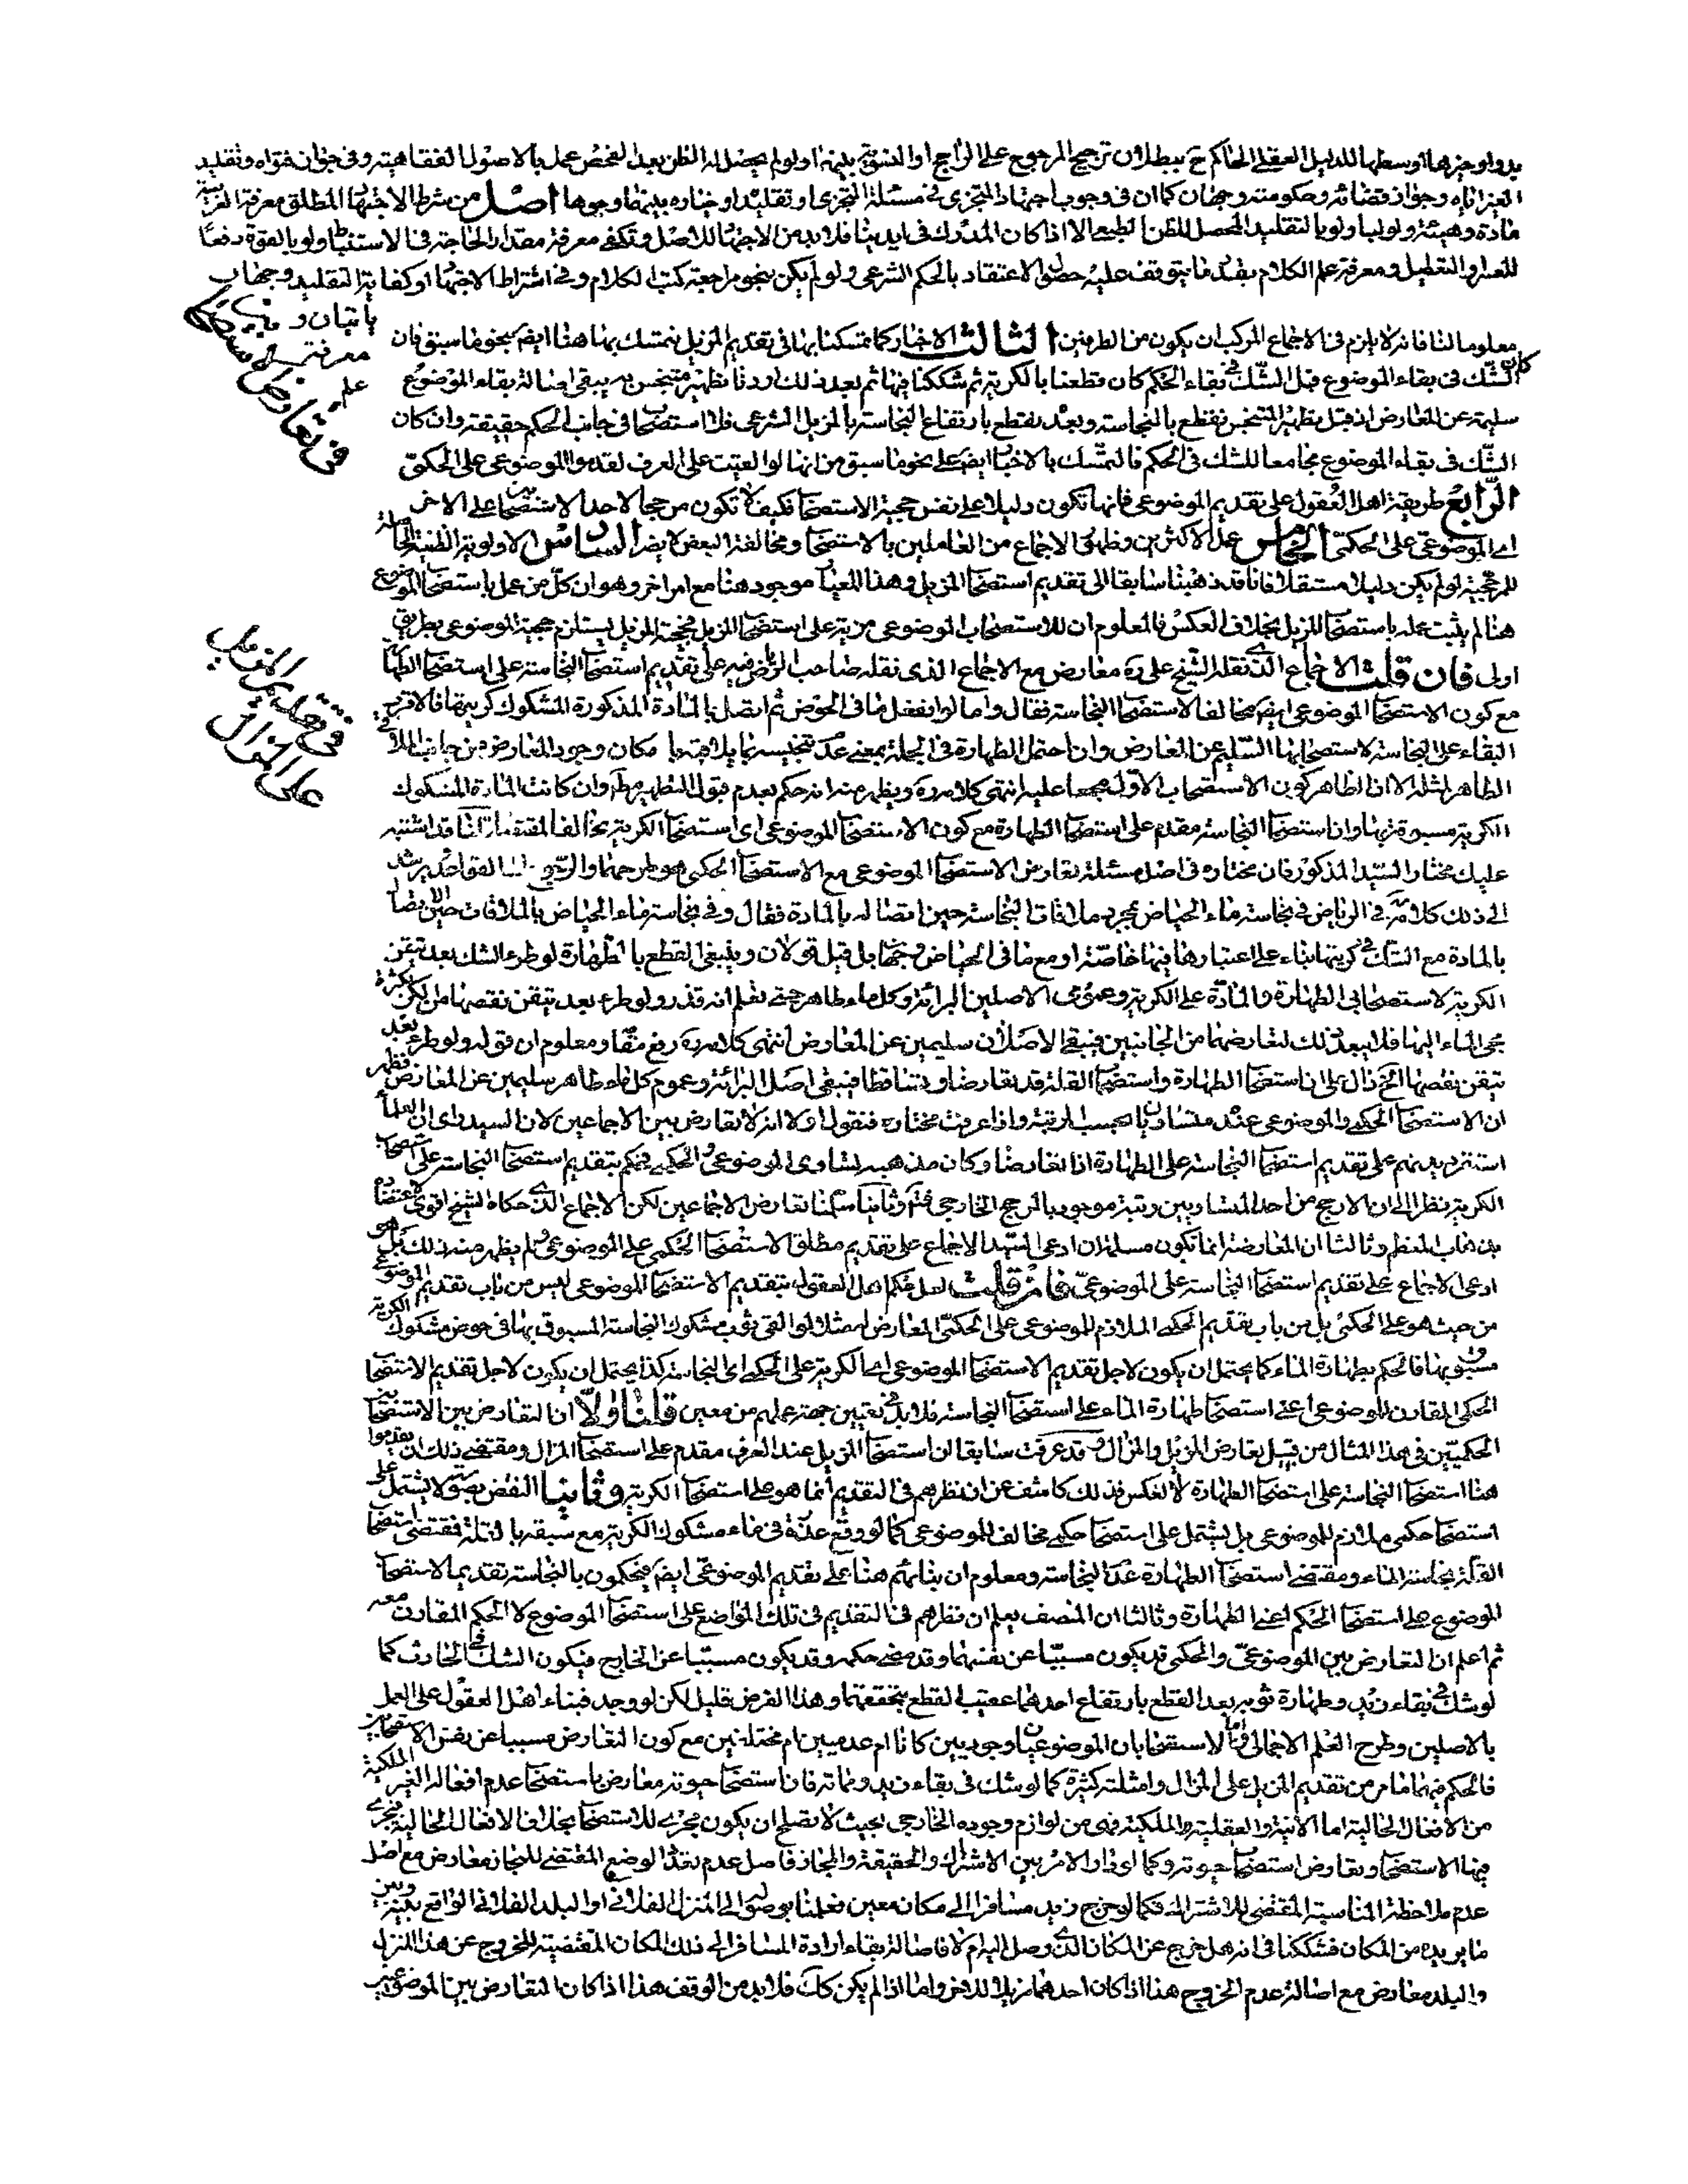 يد واوجزها اوسطها للدليل العقلي الحاكم ح ببطلان ترجيح المرجوح على الراجح او التسوية بينهما ولو لم يحصل له الظن بعد الفحص عمل بالاصول الفقاهية وفى جواز فتواه وتقليد
الغير اياه وجواز قضائه وحكومته وجهان كما ان فى وجوب اجتهاد المتجزى فى مسئلة التجزى او تقليده او خياره بينهما وجوها اصل من شرط الاجتهاد المطلق معرفة العربية
مادة وهيئة ولو لبا ولو بالتقليد المحصل للظن الطبيعى الا اذا كان المدرك فى ايدينا فلا بد من الاجتهاد للاصل وتكفى معرفة مقدار الحاجة فى الاستنباط ولو بالقوة دفعا
للعسر والتعطيل ومعرفة علم الكلام بقدر ما يتوقف عليه حصول الاعتقاد بالحكم الشرعى ولو لم يكن بنحو مراجعة كتب الكلام وفى اشتراط الاجتهاد او كفاية التقليد وجهان
ياتيان و
معرفة
علم
فى تعارض
معلوما لنا فانه لا يلزم فى الاجماع المركب ان يكون من الطرفين الثالث الاخبار كما تمسكنا بها فى تقديم المزيل نتمسك بها هنا ايضا بنحو ما سبق فان
كان الشك فى بقاء الموضوع قبل الشك فى بقاء الحكم كان قطعنا بالكرية ثم شككنا فيها ثم بعد ذلك اردنا تطهير متنجس به يبقى اصالة بقاء الموضوع
سليمة عن المعارض اذ قبل تطهير المتنجس نقطع بالنجاسة وبعده نقطع بارتفاع النجاسة بالمزيل الشرعى فلا استصحاب فى جانب الحكم حقيقة وان كان
الشك فى بقاء الموضوع مجامعا للشك فى الحكم فالتمسك بالاخبار ايضا على نحو ما سبق من انها لو القيت على العرف لقدموا الموضوعى على الحكمى
الرابع طريقة اهل العقول على تقديم الموضوعى فانها تكون دليلا على نفس حجية الاستصحاب فكيف لا تكون مرجحا لاحد الاستصحابين على الاخر
اى الموضوعى على الحكمى الخامس عمل الاكثرين وظهور الاجماع من العاملين بالاستصحاب ومخالفة البعض لا يضر السادس الاولوية الظنية الصالحة
للمرجحية لو لم يكن دليلا مستقلا فانا قد ذهبنا سابقا الى تقديم استصحاب المزيل وهذا المعيار موجود هنا مع امر اخر وهو ان كل من عمل باستصحاب الموضوع
هنا لم يثبت عمله باستصحاب المزيل بخلاف العكس فالمعلوم ان للاستصحاب الموضوعى مزية على استصحاب المزيل فحجية المزيل يستلزم حجية الموضوعى بطريق
فى تقديم المزيل
على المزال
اولى فان قلت الاجماع الذى نقله الشيخ على ره معارض مع الاجماع الذى نقله صاحب الرياض فيه على تقديم استصحاب النجاسة على استصحاب الطهارة
مع كون الاستصحاب الموضوعى ايضا مخالفا لاستصحاب النجاسة فقال واما لو انفعل ما فى الحوض ثم اتصل بالمادة المذكورة المشكوك كريتها فالاقرب
البقاء على النجاسة لاستصحابها السليم عن المعارض وان احتمل الطهارة فى الجملة بمعنى عدم تنجيسه ما يلاقيه بامكان وجود المعارض من جانب الملاقى
الطاهر لمثله الا ان الظاهر كون الاستصحاب الاول مجمعا عليه انتهى كلامه ره ويظهر منه انه حكم بعدم قبول التطهير مط وان كانت المادة المشكوك
الكرية مسبوقة بها وان استصحاب النجاسة مقدم على استصحاب الطهارة مع كون الاستصحاب الموضوعى اى استصحاب الكرية مخالفا لمقتضاه قلنا قد اشتبه
عليك مختار السيد المذكور فان مختاره فى اصل مسئلة تعارض الاستصحاب الموضوعى مع الاستصحاب الحكمى هو طرحهما والرجوع الى القواعد يرشد
الى ذلك كلامه فى الرياض فى نجاسة ماء الحياض بمجرد ملاقات النجاسة حين اتصاله بالمادة فقال وفى نجاسة ماء الحياض بالملاقات حين الاتصال
بالمادة مع الشك فى كريتها بناء على اعتبارها فيها خاصة او مع ما فى الحياض وجهان بل قيل قولان وينبغى القطع بالطهارة لو طرء الشك بعد تيقن
الكرية لاستصحابى الطهارة والمادة على الكرية وعموم الاصلين البرائة وكل ماء طاهر حتى تعلم انه قذر ولو طرء بعد تيقن نقصها من الكر لكثرة
مجى الماء اليها فلا يبعد ذلك لتعارضهما من الجانبين فيبقى الاصلان سليمين عن المعارض انتهى كلامه ره رفع مقامه ومعلوم ان قوله ولو طرء بعد
تيقن نقصها الخ دال على ان استصحاب الطهارة واستصحاب القلة قد تعارضا وتساقطا فيبقى اصل البرائة وعموم كل ماء طاهر سليمين عن المعارض فظهر
ان الاستصحاب الحكمى والموضوعى عنده متساويان بحسب المرتبة واذا عرفت مختاره فنقول اولا انه لا تعارض بين الاجماعين لان السيد راى ان العلماء
استقر ديدنهم على تقديم استصحاب النجاسة على الطهارة اذا تعارضا وكان مذهبه تساوى الموضوعى والحكمى فحكم بتقديم استصحاب النجاسة على استصحاب
الكرية نظرا الى ان الارجح من احد المتساويين رتبة موجود بالمرجح الخارجى فتم وثانيا سلمنا تعارض الاجماعين لكن الاجماع الذى حكاه الشيخ اقوى لاعتضاده
بذهاب المعظم وثالثا ان المعارضة انما تكون مسلمة ان ادعى السيد الاجماع على تقديم مطلق الاستصحاب الحكمى على الموضوعى ولم يظهر منه ذلك بل هو
ادعى الاجماع على تقديم استصحاب النجاسة على الموضوعى فان قلت لعل حكم اهل العقول بتقديم الاستصحاب الموضوعى ليس من باب تقديم الموضوعى
من حيث هو على الحكمى بل من باب تقديم الحكمى الملازم للموضوعى على الحكمى المعارض له مثلا لو القى ثوب مشكوك النجاسة المسبوق بها فى حوض مشكوك الكرية
مسبوق بها فالحكم بطهارة الماء كما يحتمل ان يكون لاجل تقديم الاستصحاب الموضوعى اى الكرية على الحكمى اى النجاسة كذا يحتمل ان يكون لاجل تقديم الاستصحاب
الحكمى المقارن للموضوعى اعنى استصحاب طهارة الماء على استصحاب النجاسة فلا بد فى تعيين جهة عملهم من معين قلنا اولا ان التعارض بين الاستصحابين
الحكميين فى هذا المثال من قبيل تعارض المزيل والمزال وقد عرفت سابقا ان استصحاب المزيل عند العرف مقدم على استصحاب المزال ومقتضى ذلك ان يقدموا
هنا استصحاب النجاسة على استصحاب الطهارة لا العكس فذلك كاشف عن ان نظرهم فى التقديم انما هو على استصحاب الكرية وثانيا النقض بصورة لا يشتمل على
استصحاب حكمى ملازم للموضوعى بل يشتمل على استصحاب حكمى مخالف للموضوعى كما لو وقع عذرة فى ماء مشكوك الكرية مع سبقه بالقلة فمقتضى استصحاب
القلة نجاسة الماء ومقتضى استصحاب الطهارة عدم النجاسة ومعلوم ان بنائهم هنا على تقديم الموضوعى ايضا فيحكمون بالنجاسة تقديما لاستصحاب
الموضوع على استصحاب الحكم اعنى الطهارة وثالثا ان المنصف يعلم ان نظرهم فى التقديم فى تلك المواضع على استصحاب الموضوع لا الحكم المقارن معه
ثم اعلم ان التعارض بين الموضوعى والحكمى قد يكون مسببا عن نفسهما وقد مضى حكمه وقد يكون مسببا عن الخارج فيكون الشك فى الحادث كما
لو شك فى بقاء زيد وطهارة ثوبه بعد القطع بارتفاع احدهما عقيب القطع بتحققهما وهذا الفرض قليل لكن لو وجد فبناء اهل العقول على العمل
بالاصلين وطرح العلم الاجمالى واما الاستصحابان الموضوعيان وجوديين كانا ام عدميين ام مختلفين مع كون التعارض مسببا عن نفس الاستصحابين
فالحكم فيهما ما مر من تقديم المزيل على المزال وامثلته كثيرة كما لو شك فى بقاء زيد ومماته فان استصحاب حيوته معارض باستصحاب عدم افعاله الغير الملكية
من الافعال الحالية اما الانية والعقلية والملكية فهى من لوازم وجوده الخارجى بحيث لا تصلح ان يكون مجرى للاستصحاب بخلاف الافعال الحالية فيجرى
فيها الاستصحاب وتعارض استصحاب حيوته وكما لو دار الامر بين الاشتراك والحقيقة والمجاز فاصل عدم تعدد الوضع المقتضى للمجاز معارض مع اصل
عدم ملاحظة المناسبة المقتضى للاشتراك وكما لو خرج زيد مسافرا الى مكان معين فعلمنا بوصوله الى المنزل الفلانى او البلد الفلانى الواقع بينه وبين
ما يريده من المكان فشككنا فى انه هل خرج عن المكان الذى وصل اليه ام لا فاصالة بقاء ارادة المسافر الى ذلك المكان المقتضية للخروج عن هذا المنزل
والبلد معارض مع اصالة عدم الخروج هذا اذا كان احدهما مزيلا للاخر واما اذا لم يكن كك فلا بد من الوقف هذا اذا كان التعارض بين الموضوعيين